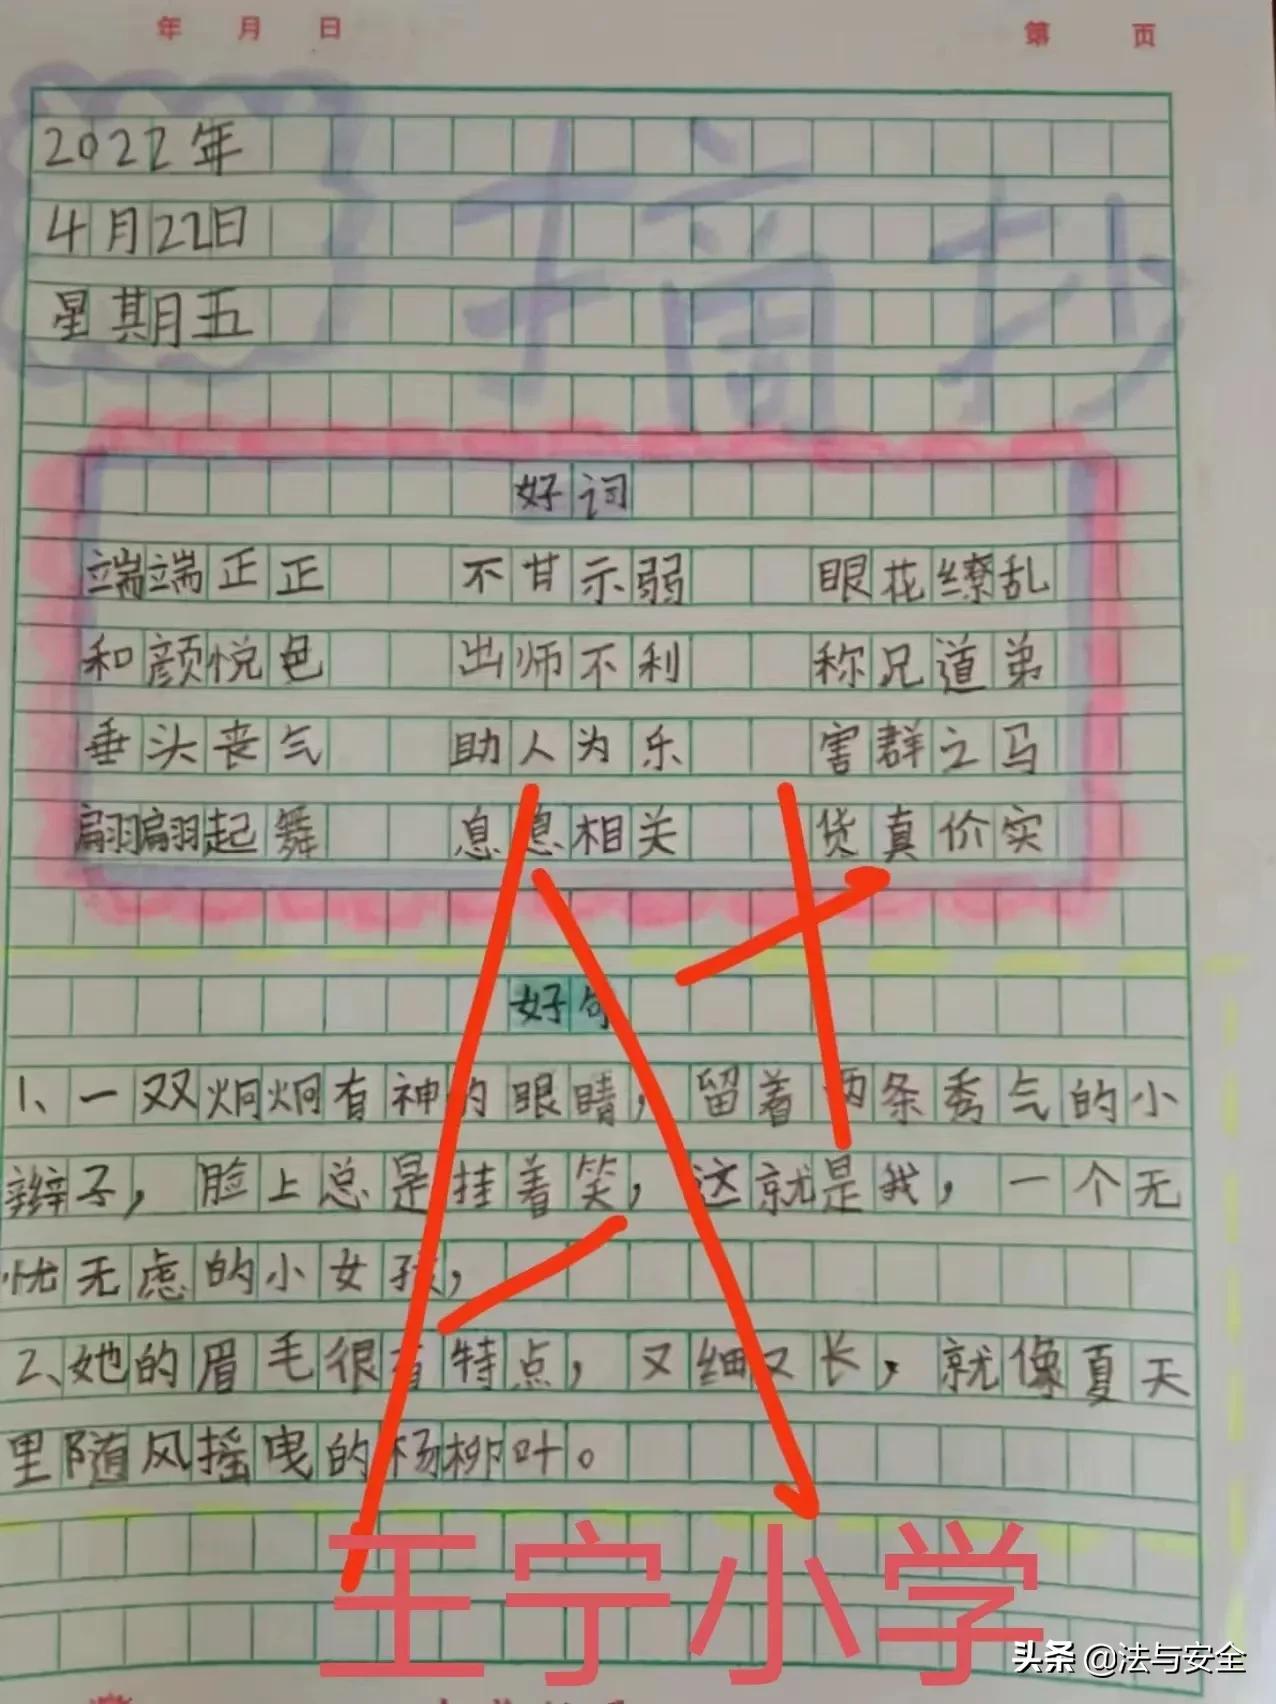 年 月 日
第 页
2022年
4月22日
星期五
摘抄
好词
端端正正 不甘示弱 眼花缭乱
和颜悦色 出师不利 称兄道弟
垂头丧气 助人为乐 害群之马
翩翩起舞 息息相关 货真价实
好句
1、一双炯炯有神的眼睛,留着两条秀气的小
辫子,脸上总是挂着笑,这就是我,一个无
忧无虑的小女孩,
2、她的眉毛很有特点,又细又长,就像夏天
里随风摇曳的杨柳叶。
A+
王宁小学
头条 @法与安全